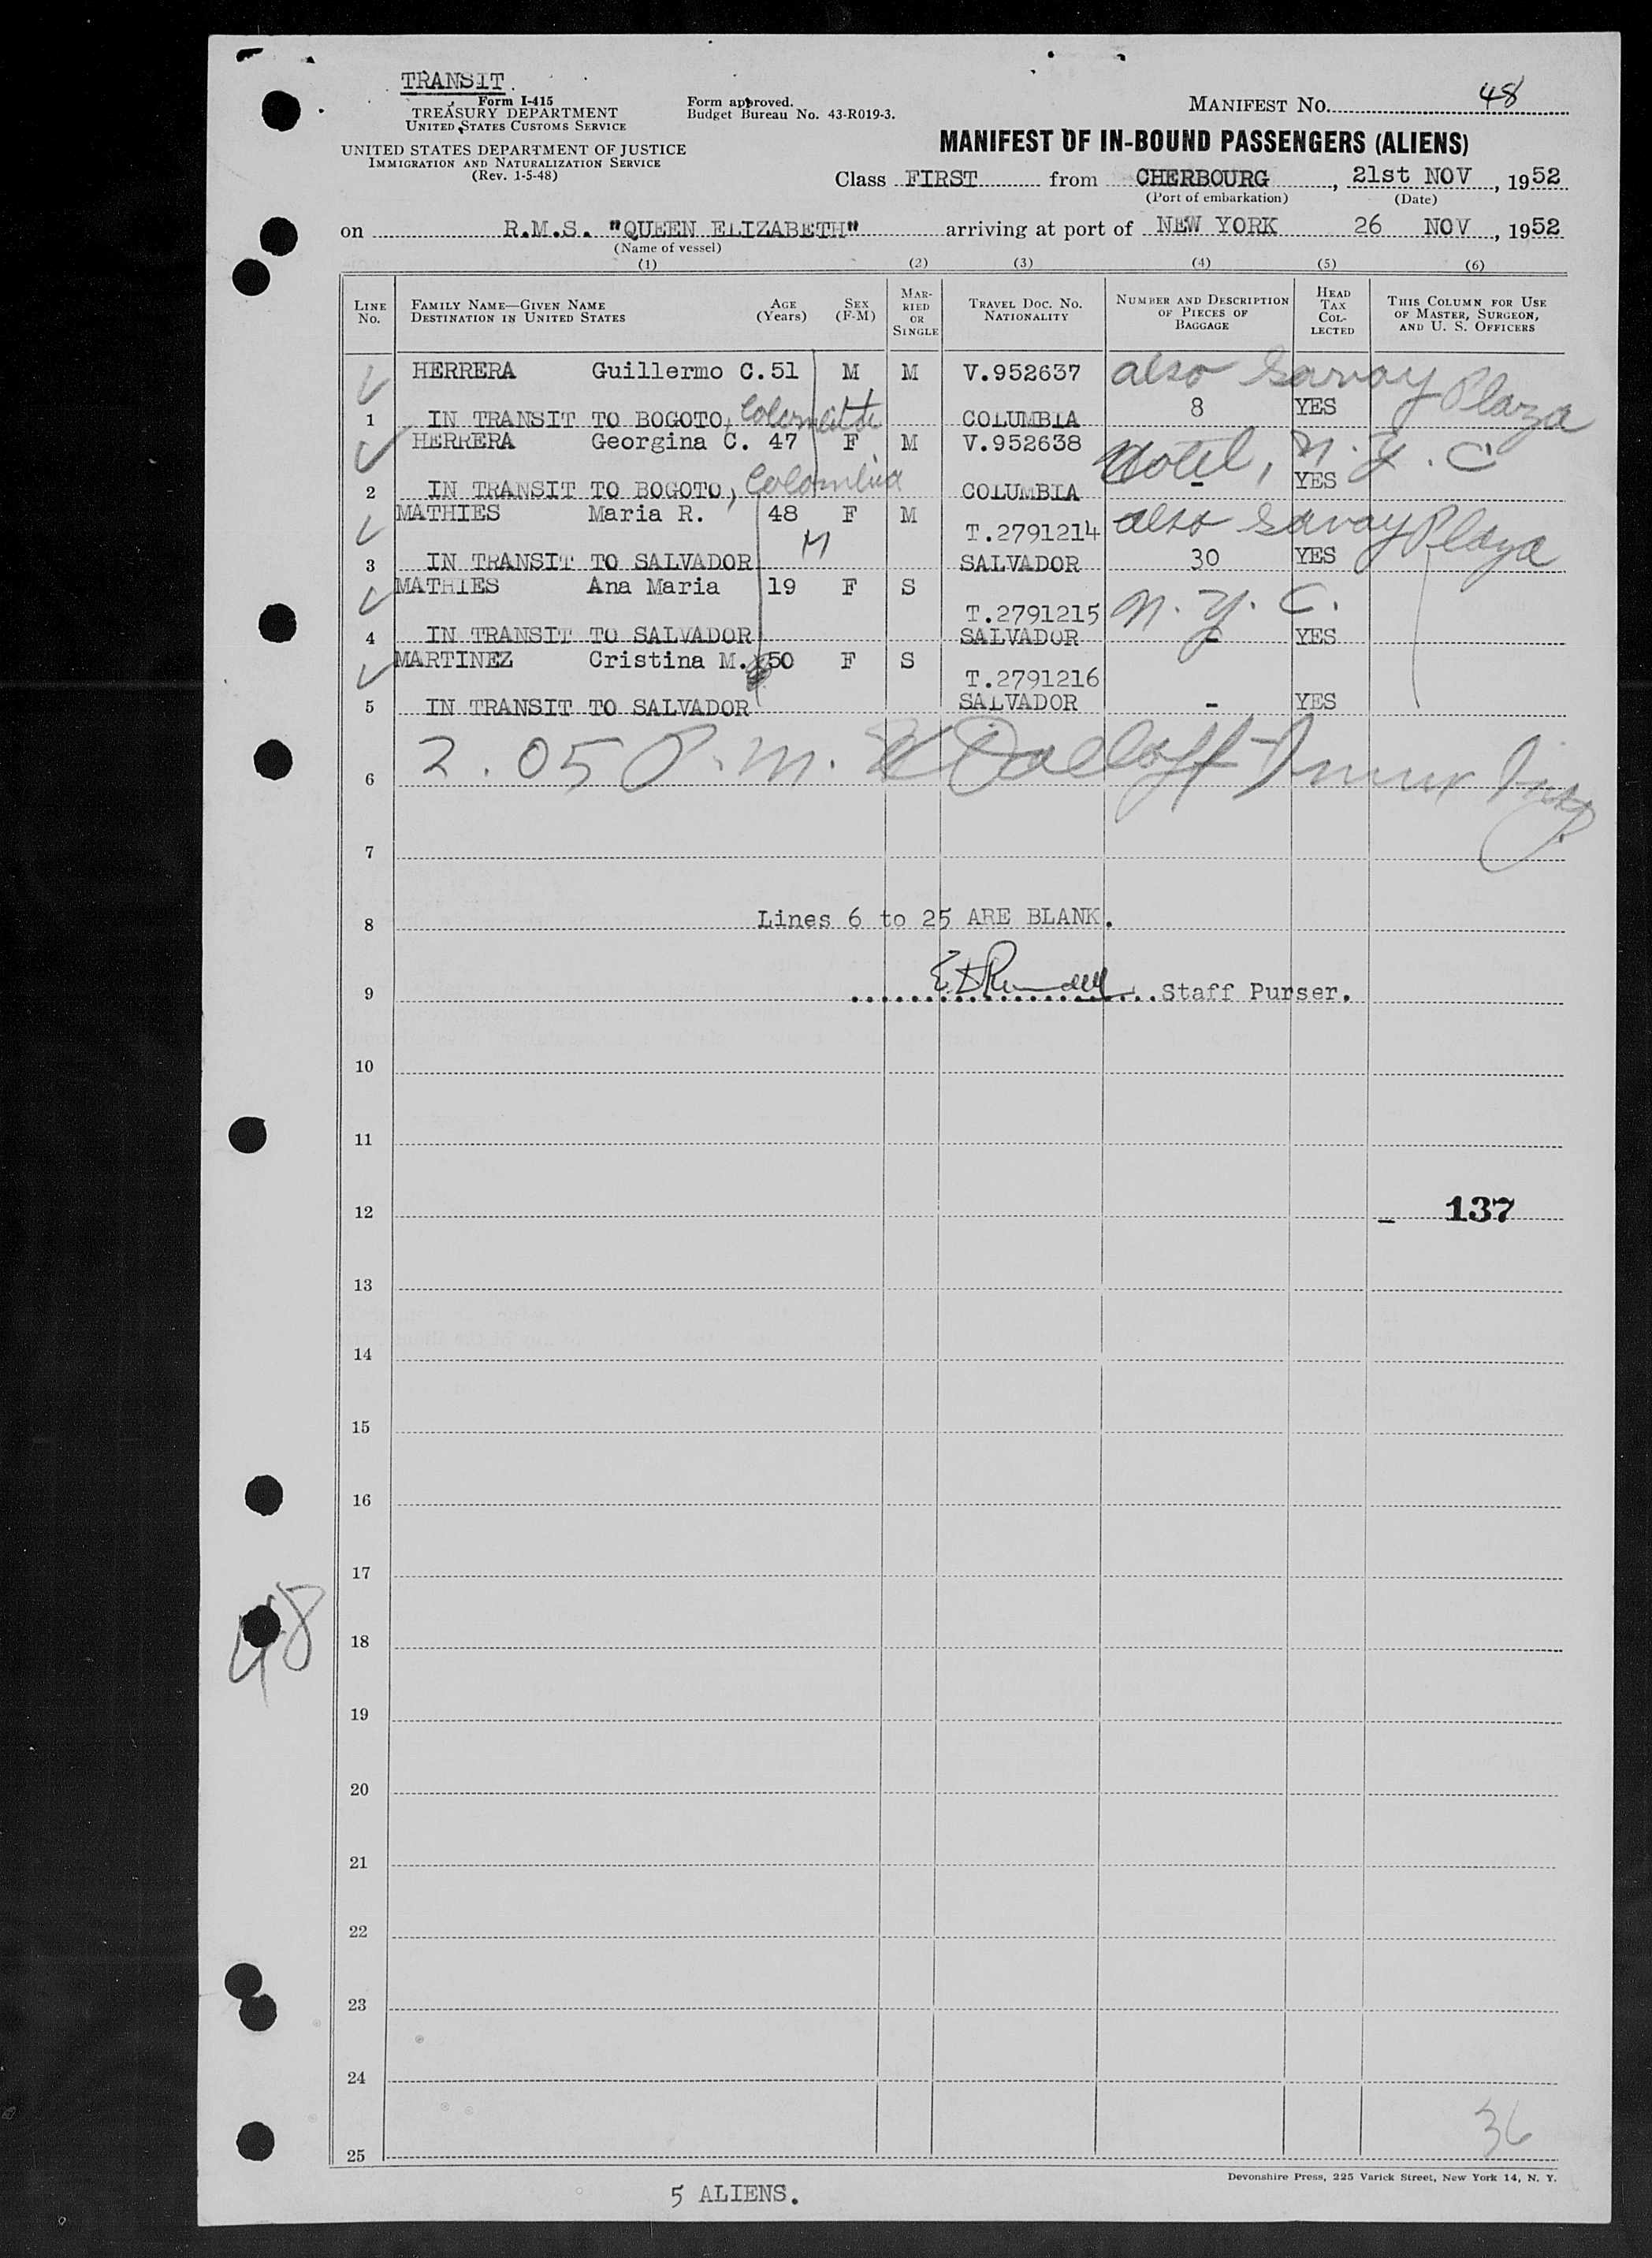 TRANSIT
Form I-415
TREASURY DEPARTMENT
UNITED STATES CUSTOMS SERVICE
UNITED STATES DEPARTMENT OF JUSTICE
IMMIGRATION AND NATURALIZATION SERVICE
(Rev. 1-5-48)
Form approved.
Budget Bureau No. 43-R019-3.
MANIFEST NO. 48
MANIFEST OF IN-BOUND PASSENGERS (ALIENS)
Class FIRST from CHERBOURG, 21st NOV, 1952
(Port of embarkation) (Date)
on R.M.S. "QUEEN ELIZABETH" arriving at port of NEW YORK 26 NOV, 1952
(Name of vessel)
(1) (2) (3) (4) (5) (6)
LINE NO. FAMILY NAME—GIVEN NAME DESTINATION IN UNITED STATES AGE (Years) SEX (F-M) MARRIED OR SINGLE TRAVEL DOC. NO. NATIONALITY NUMBER AND DESCRIPTION OF PIECES OF BAGGAGE HEAD TAX COLLECTED THIS COLUMN FOR USE OF MASTER, SURGEON, AND U. S. OFFICERS
HERRERA Guillermo C. 51 M M V.952637 also Savoy Plaza
1 IN TRANSIT TO BOGOTO, COLUMBIA 8 YES
HERRERA Georgina C. 47 F M V.952638 Hotel, N.Y.C
2 IN TRANSIT TO BOGOTO, Colombia COLUMBIA - YES
MATHIES Maria R. 48 F M T.2791214 also Savoy Plaza
3 IN TRANSIT TO SALVADOR M SALVADOR 30 YES
MATHIES Ana Maria 19 F S T.2791215 N.Y.C.
4 IN TRANSIT TO SALVADOR SALVADOR - YES
MARTINEZ Cristina M. 50 F S T.2791216
5 IN TRANSIT TO SALVADOR SALVADOR - YES
6 2.05 P.M.
7
8 Lines 6 to 25 ARE BLANK.
9 Staff Purser.
10
11
12 - 137
13
14
15
16
17
48
18
19
20
21
22
23
24
36
25
Devonshire Press, 225 Varick Street, New York 14, N. Y.
5 ALIENS.